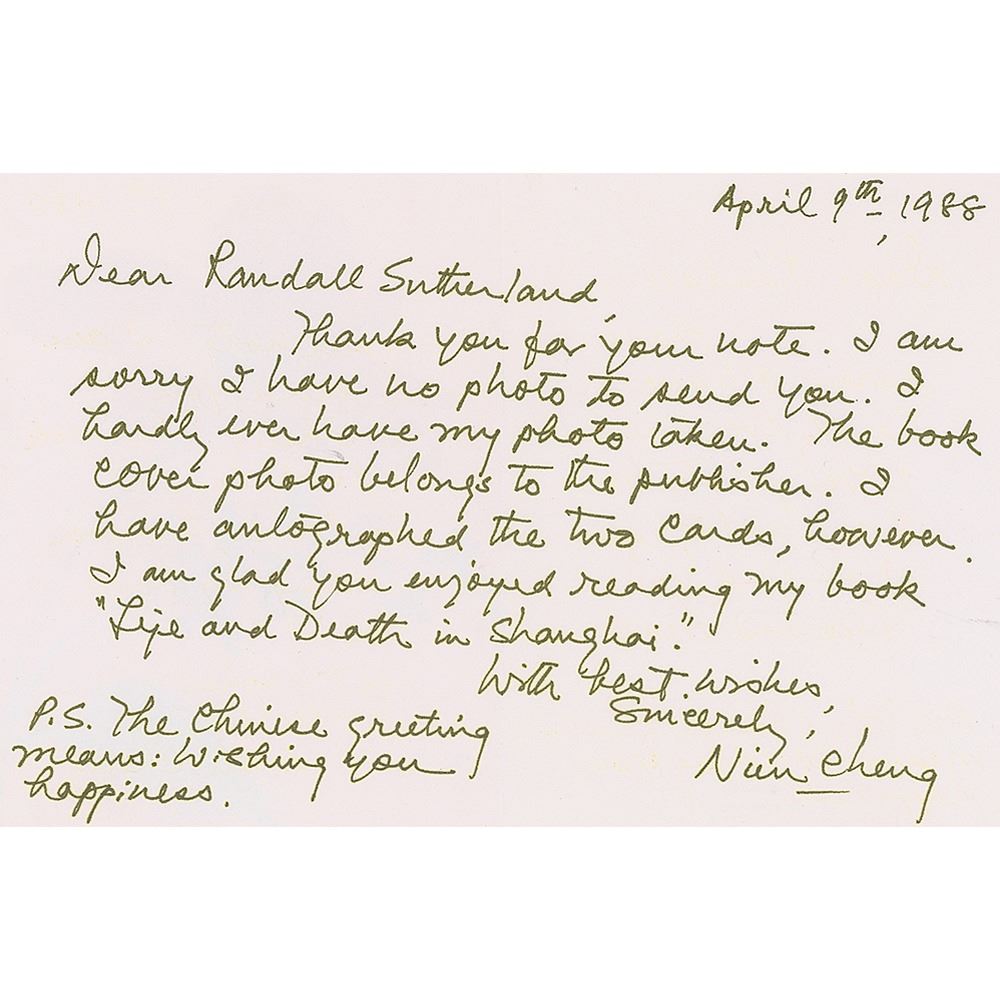 April 9th, 1988
Dear Randall Sutherland,
Thank you for your note. I am
sorry I have no photo to send you. I
hardly ever have my photo taken. The book
cover photo belongs to the publisher. I
have autographed the two cards, however.
I am glad you enjoyed reading my book
"Life and Death in Shanghai."
With best wishes,
Sincerely,
Nien Cheng
P.S. The Chinese greeting
means: Wishing you
happiness.